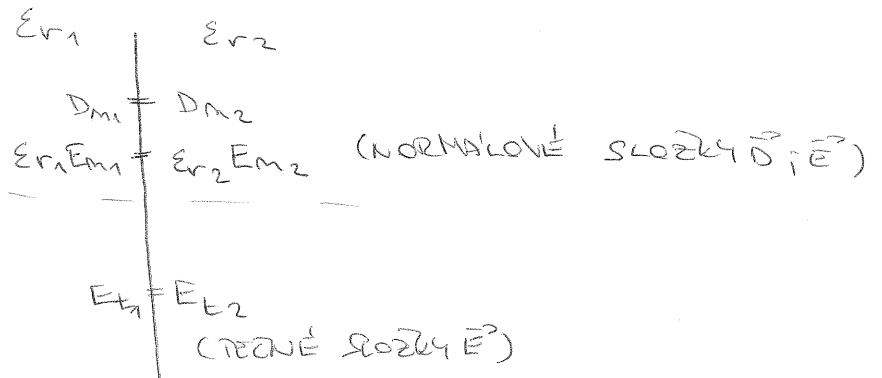 εr1 εr2
Dn1 = Dn2
εr1En1 = εr2En2 (NORMÁLOVÉ SLOŽKY D⃗ ; E⃗)
Et1 = Et2
(TEČNÉ SLOŽKY E⃗)